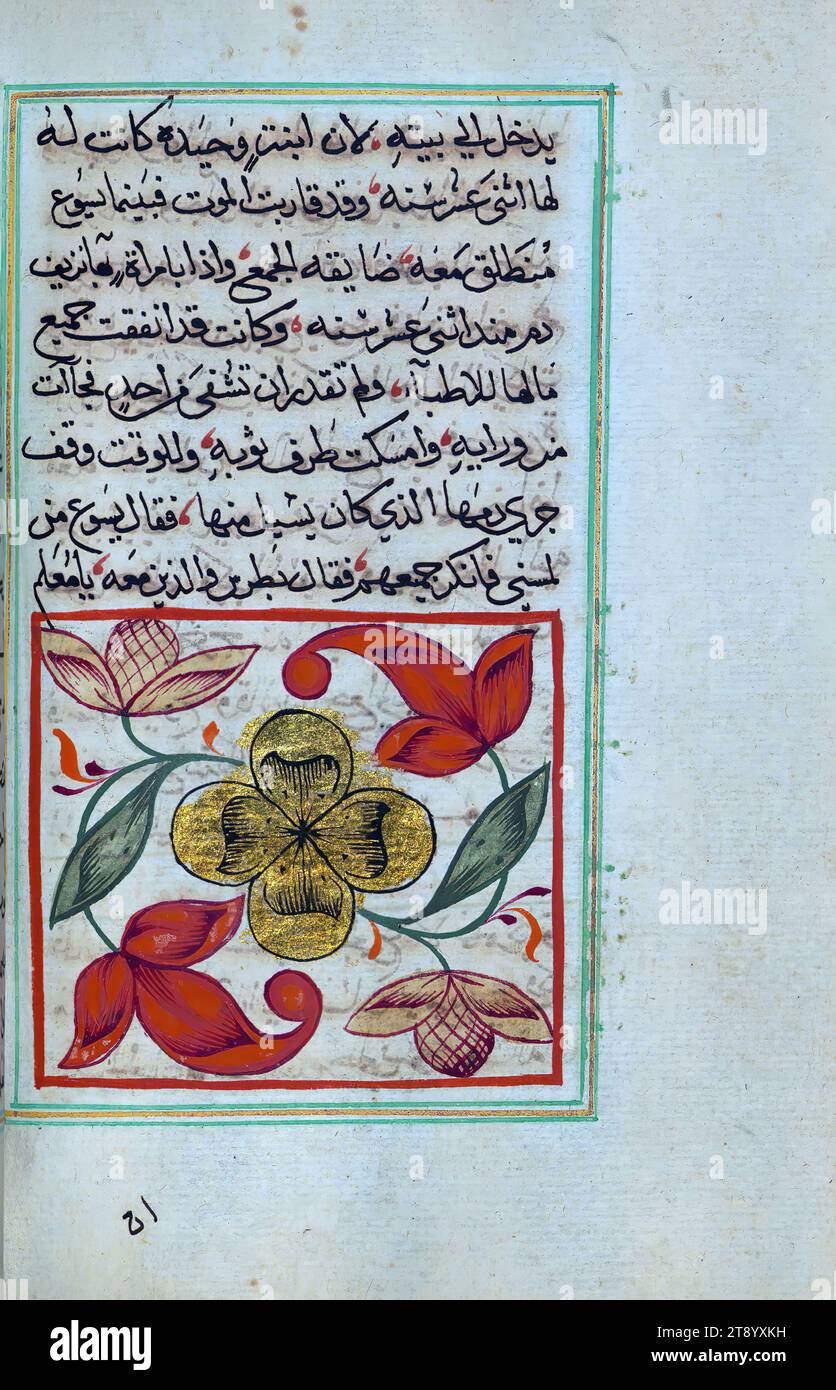 يدخل الي بيته، لان ابنة وحيده كانت له
لها اثنى عشر سنه، وقد قاربت الموت فبينما يسوع
منطلق معه، ضايقه الجمع، واذا بامراة بها نزيف
دم منذ اثنى عشر سنه، وكانت قد انفقت جميع
مالها للاطبآء، ولم تقدر ان تشفى من احد فجاآت
من ورايه، وامسكت طرف ثوبه، وللوقت وقف
جري دمها الذي كان يسيل منها، فقال يسوع من
لمسني فانكر جميعهم، فقال بطرس والذين معه، يا معلم
alamy
Image ID: 2T8YXKH
www.alamy.com